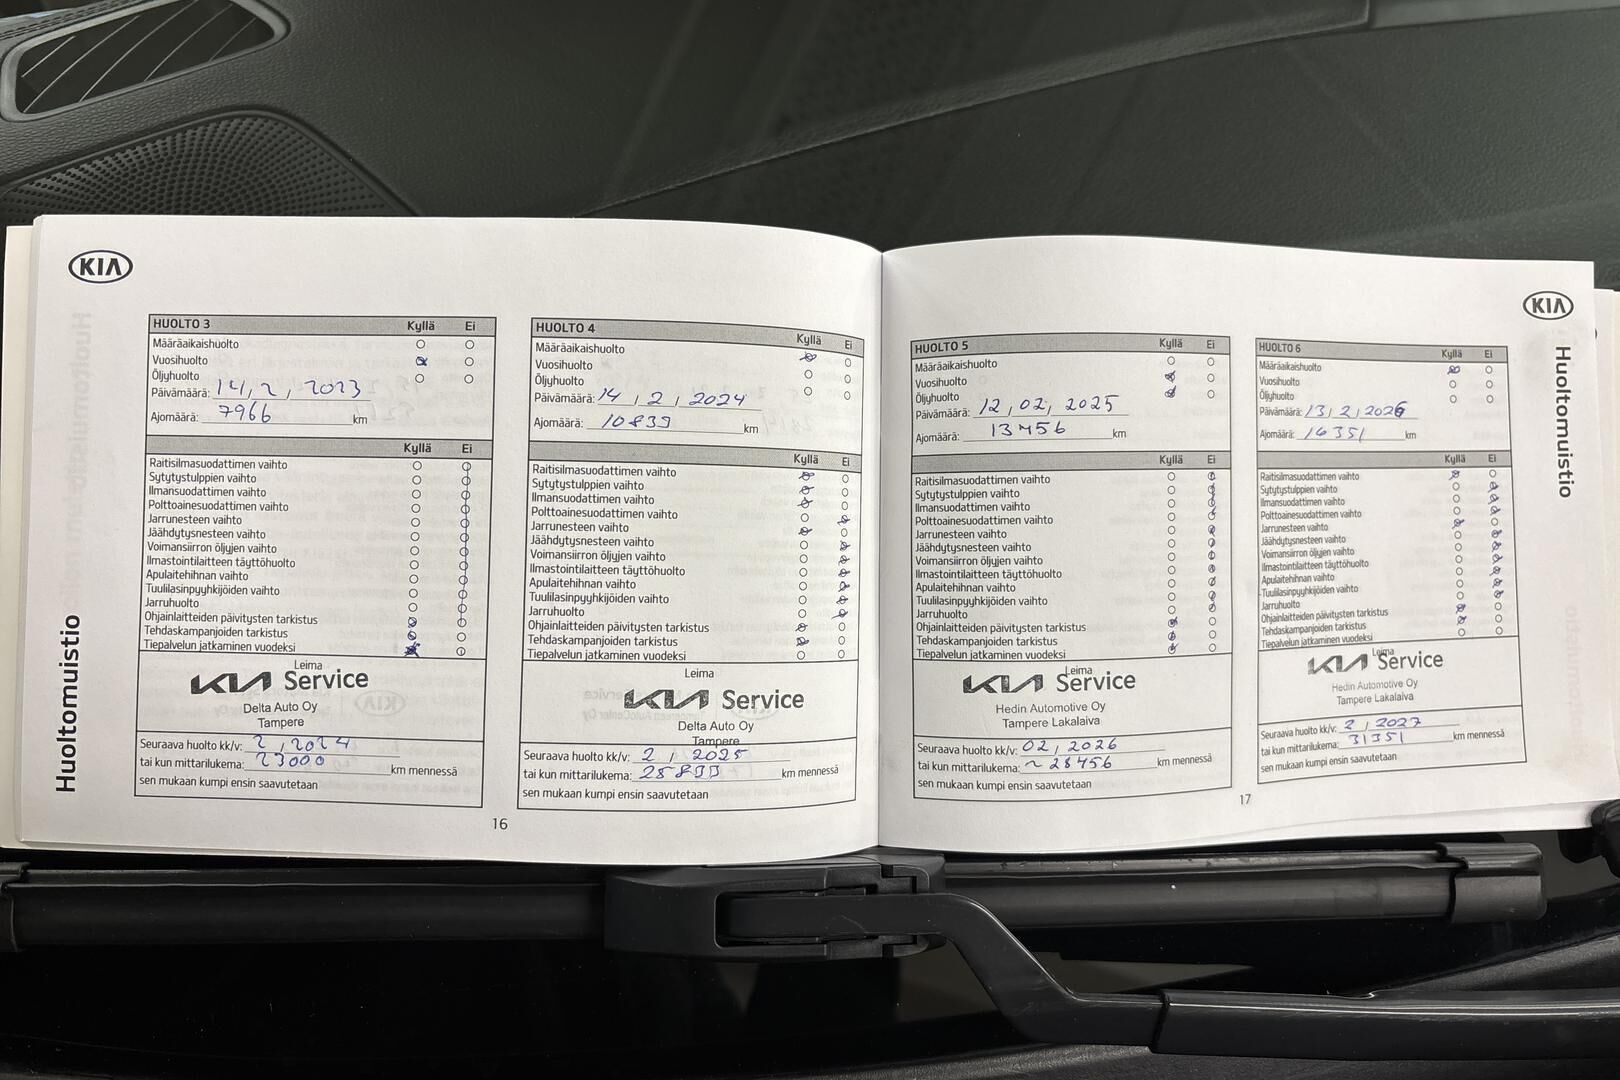 KIA
Huoltomuistio
HUOLTO 3 Kyllä Ei
Määräaikaishuolto
Vuosihuolto
Öljyhuolto
Päivämäärä: 14, 2, 2023
Ajomäärä: 7966 km
Kyllä Ei
Raitisilmasuodattimen vaihto
Sytytystulppien vaihto
Ilmansuodattimen vaihto
Polttoainesuodattimen vaihto
Jarrunesteen vaihto
Jäähdytysnesteen vaihto
Voimansiirron öljyjen vaihto
Ilmastointilaitteen täyttöhuolto
Apulaitehihnan vaihto
Tuulilasinpyyhkijöiden vaihto
Jarruhuolto
Ohjainlaitteiden päivitysten tarkistus
Tehdaskampanjoiden tarkistus
Tiepalvelun jatkaminen vuodeksi
Leima
KIA Service
Delta Auto Oy
Tampere
Seuraava huolto kk/v: 2, 2024
tai kun mittarilukema: 23000 km mennessä
sen mukaan kumpi ensin saavutetaan
HUOLTO 4 Kyllä Ei
Määräaikaishuolto
Vuosihuolto
Öljyhuolto
Päivämäärä: 14, 2, 2024
Ajomäärä: 10899 km
Kyllä Ei
Raitisilmasuodattimen vaihto
Sytytystulppien vaihto
Ilmansuodattimen vaihto
Polttoainesuodattimen vaihto
Jarrunesteen vaihto
Jäähdytysnesteen vaihto
Voimansiirron öljyjen vaihto
Ilmastointilaitteen täyttöhuolto
Apulaitehihnan vaihto
Tuulilasinpyyhkijöiden vaihto
Jarruhuolto
Ohjainlaitteiden päivitysten tarkistus
Tehdaskampanjoiden tarkistus
Tiepalvelun jatkaminen vuodeksi
Leima
KIA Service
Delta Auto Oy
Tampere
Seuraava huolto kk/v: 2, 2025
tai kun mittarilukema: 25899 km mennessä
sen mukaan kumpi ensin saavutetaan
16
HUOLTO 5 Kyllä Ei
Määräaikaishuolto
Vuosihuolto
Öljyhuolto
Päivämäärä: 12, 02, 2025
Ajomäärä: 13456 km
Kyllä Ei
Raitisilmasuodattimen vaihto
Sytytystulppien vaihto
Ilmansuodattimen vaihto
Polttoainesuodattimen vaihto
Jarrunesteen vaihto
Jäähdytysnesteen vaihto
Voimansiirron öljyjen vaihto
Ilmastointilaitteen täyttöhuolto
Apulaitehihnan vaihto
Tuulilasinpyyhkijöiden vaihto
Jarruhuolto
Ohjainlaitteiden päivitysten tarkistus
Tehdaskampanjoiden tarkistus
Tiepalvelun jatkaminen vuodeksi
Leima
KIA Service
Hedin Automotive Oy
Tampere Lakalaiva
Seuraava huolto kk/v: 02, 2026
tai kun mittarilukema: ~ 28456 km mennessä
sen mukaan kumpi ensin saavutetaan
HUOLTO 6 Kyllä Ei
Määräaikaishuolto
Vuosihuolto
Öljyhuolto
Päivämäärä: 13, 2, 2026
Ajomäärä: 16351 km
Kyllä Ei
Raitisilmasuodattimen vaihto
Sytytystulppien vaihto
Ilmansuodattimen vaihto
Polttoainesuodattimen vaihto
Jarrunesteen vaihto
Jäähdytysnesteen vaihto
Voimansiirron öljyjen vaihto
Ilmastointilaitteen täyttöhuolto
Apulaitehihnan vaihto
Tuulilasinpyyhkijöiden vaihto
Jarruhuolto
Ohjainlaitteiden päivitysten tarkistus
Tehdaskampanjoiden tarkistus
Tiepalvelun jatkaminen vuodeksi
Leima
KIA Service
Hedin Automotive Oy
Tampere Lakalaiva
Seuraava huolto kk/v: 2, 2027
tai kun mittarilukema: 31351 km mennessä
sen mukaan kumpi ensin saavutetaan
17
KIA
Huoltomuistio